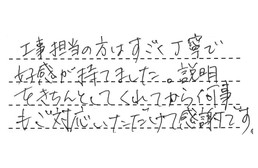 工事担当の方はすごく丁寧で
好感が持てました。説明
をきちんとしてくれてから何事
もご対応いただけて感謝です。